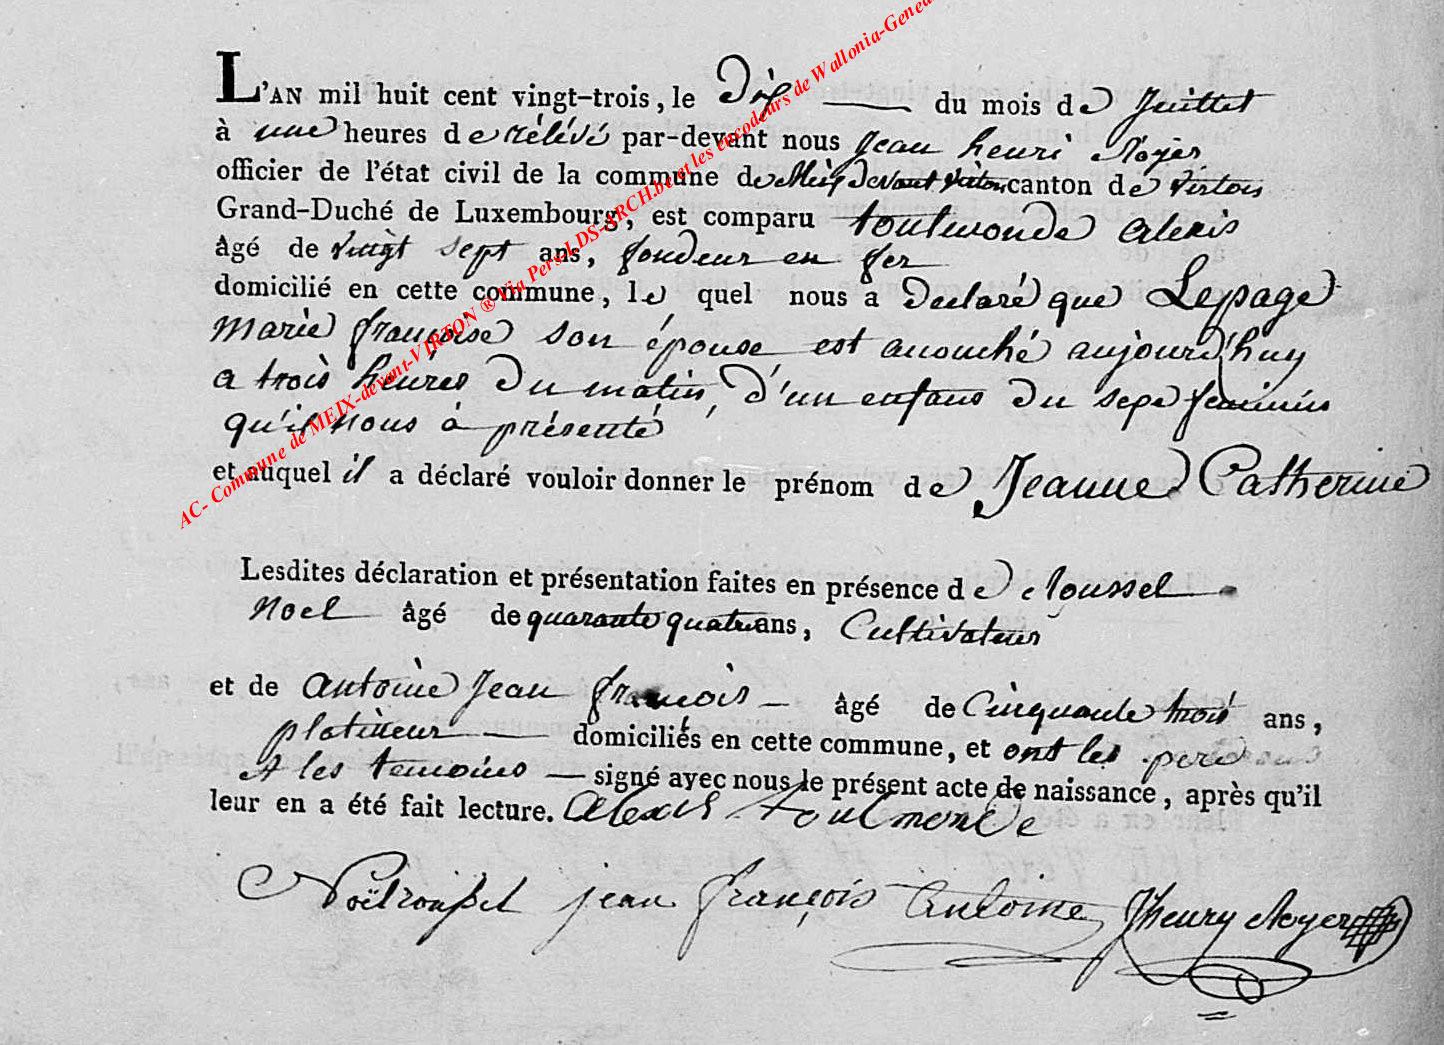 L'AN mil huit cent vingt-trois, le Dix du mois de Juillet
à une heures de rélévé par-devant nous Jean henri Noyer
officier de l'état civil de la commune de Meix devant virton canton de virton
Grand-Duché de Luxembourg, est comparu toulmonde alexis
âgé de vingt sept ans, fondeur en fer
domicilié en cette commune, le quel nous a declaré que Lepage
Marie françoise son épouse est acouché aujourd'huy
a trois heures du matin, d'un enfans du sexe feminin
qu'il nous à présenté
et auquel il a déclaré vouloir donner le prénom de Jeanne Catherine
Lesdites déclaration et présentation faites en présence de Roussel
Noel âgé de quarante quatre ans, Cultivateur
et de antoine Jean françois âgé de Cinquante trois ans,
platineur domiciliés en cette commune, et ont les pere
et les temoins signé avec nous le présent acte de naissance, après qu'il
leur en a été fait lecture. alexis toulmonde
Noël roussel jean françois Antoine Jhenry Noyer
AC- Commune de MEIX-devant-VIRTON ® Via Pers-LDS-ARCH.be et les encodeurs de Wallonia-Genea